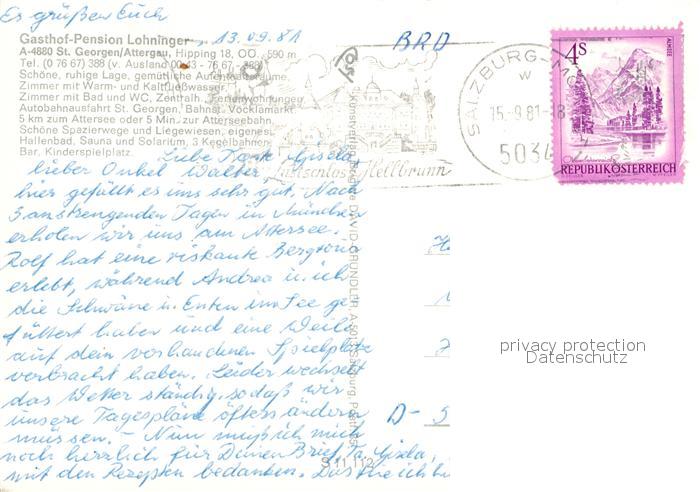 Es grüßen Euch
13.09.81
BRD
Gasthof-Pension Lohninger
A-4880 St. Georgen/Attergau, Hipping 18, OÖ, 590 m
Tel. (0 76 67) 388 (v. Ausland 00 43 - 76 67 - 388)
Schöne, ruhige Lage, gemütliche Aufenthaltsräume,
Zimmer mit Warm- und Kaltfließwasser,
Zimmer mit Bad und WC, Zentralh., Ferienwohnungen
Autobahnausfahrt St. Georgen, Bahnst. Vöcklamarkt
5 km zum Attersee oder 5 Min. zur Atterseebahn,
Schöne Spazierwege und Liegewiesen, eigenes
Hallenbad, Sauna und Solarium, 3 Kegelbahnen
Bar, Kinderspielplatz.
Hellbrunn
SALZBURG
15.-9.81-18
5034
4S
REPUBLIK ÖSTERREICH
Liebe Tante Gisela,
lieber Onkel Walter,
hier gefällt es uns sehr gut. Nach
3 anstrengenden Tagen in München
erholen wir uns am Attersee.
Rolf hat eine riskante Bergtour
erlebt, während Andrea u. ich
die Schwäne u. Enten im See ge-
füttert haben und eine Weile
auf dem vorhandenen Spielplatz
verbracht haben. Leider wechselt
das Wetter ständig, sodaß wir
unsere Tagespläne öfters ändern
müssen. - Nun muß ich mich
noch herzlich für Deinen Brief, Ta. Gisela,
mit den Rezepten bedanken.
D-5
S 11 112
privacy protection
Datenschutz